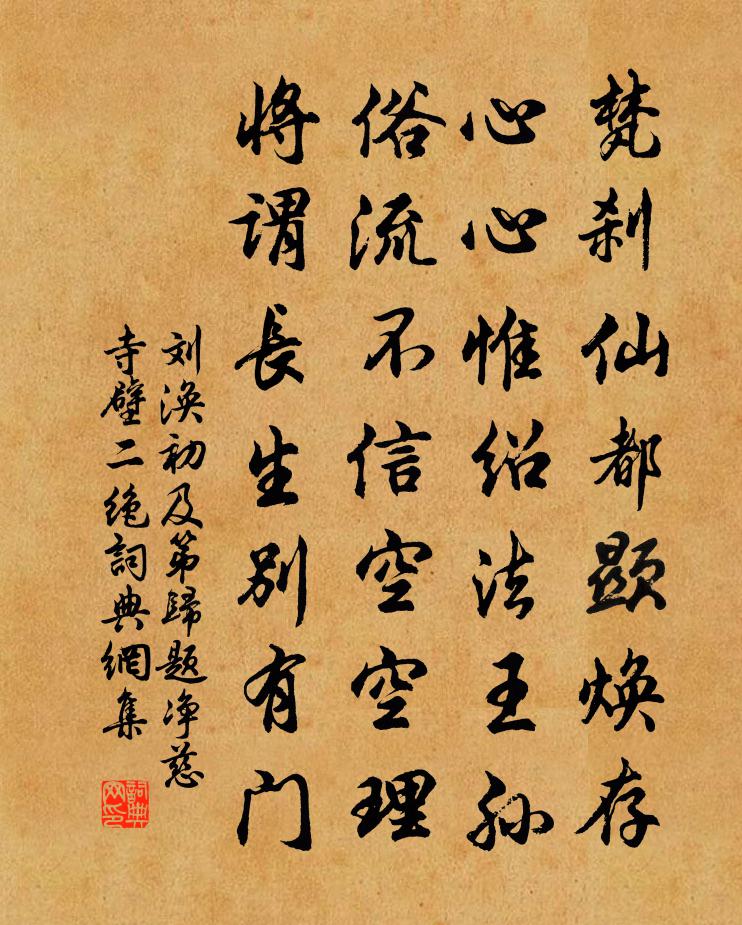 梵刹仙都顯焕存
心心惟绍法王孙
俗流不信空空理
将谓長生别有门
刘涣初及第歸题净慈
寺壁二绝詞典網集
詞典网印